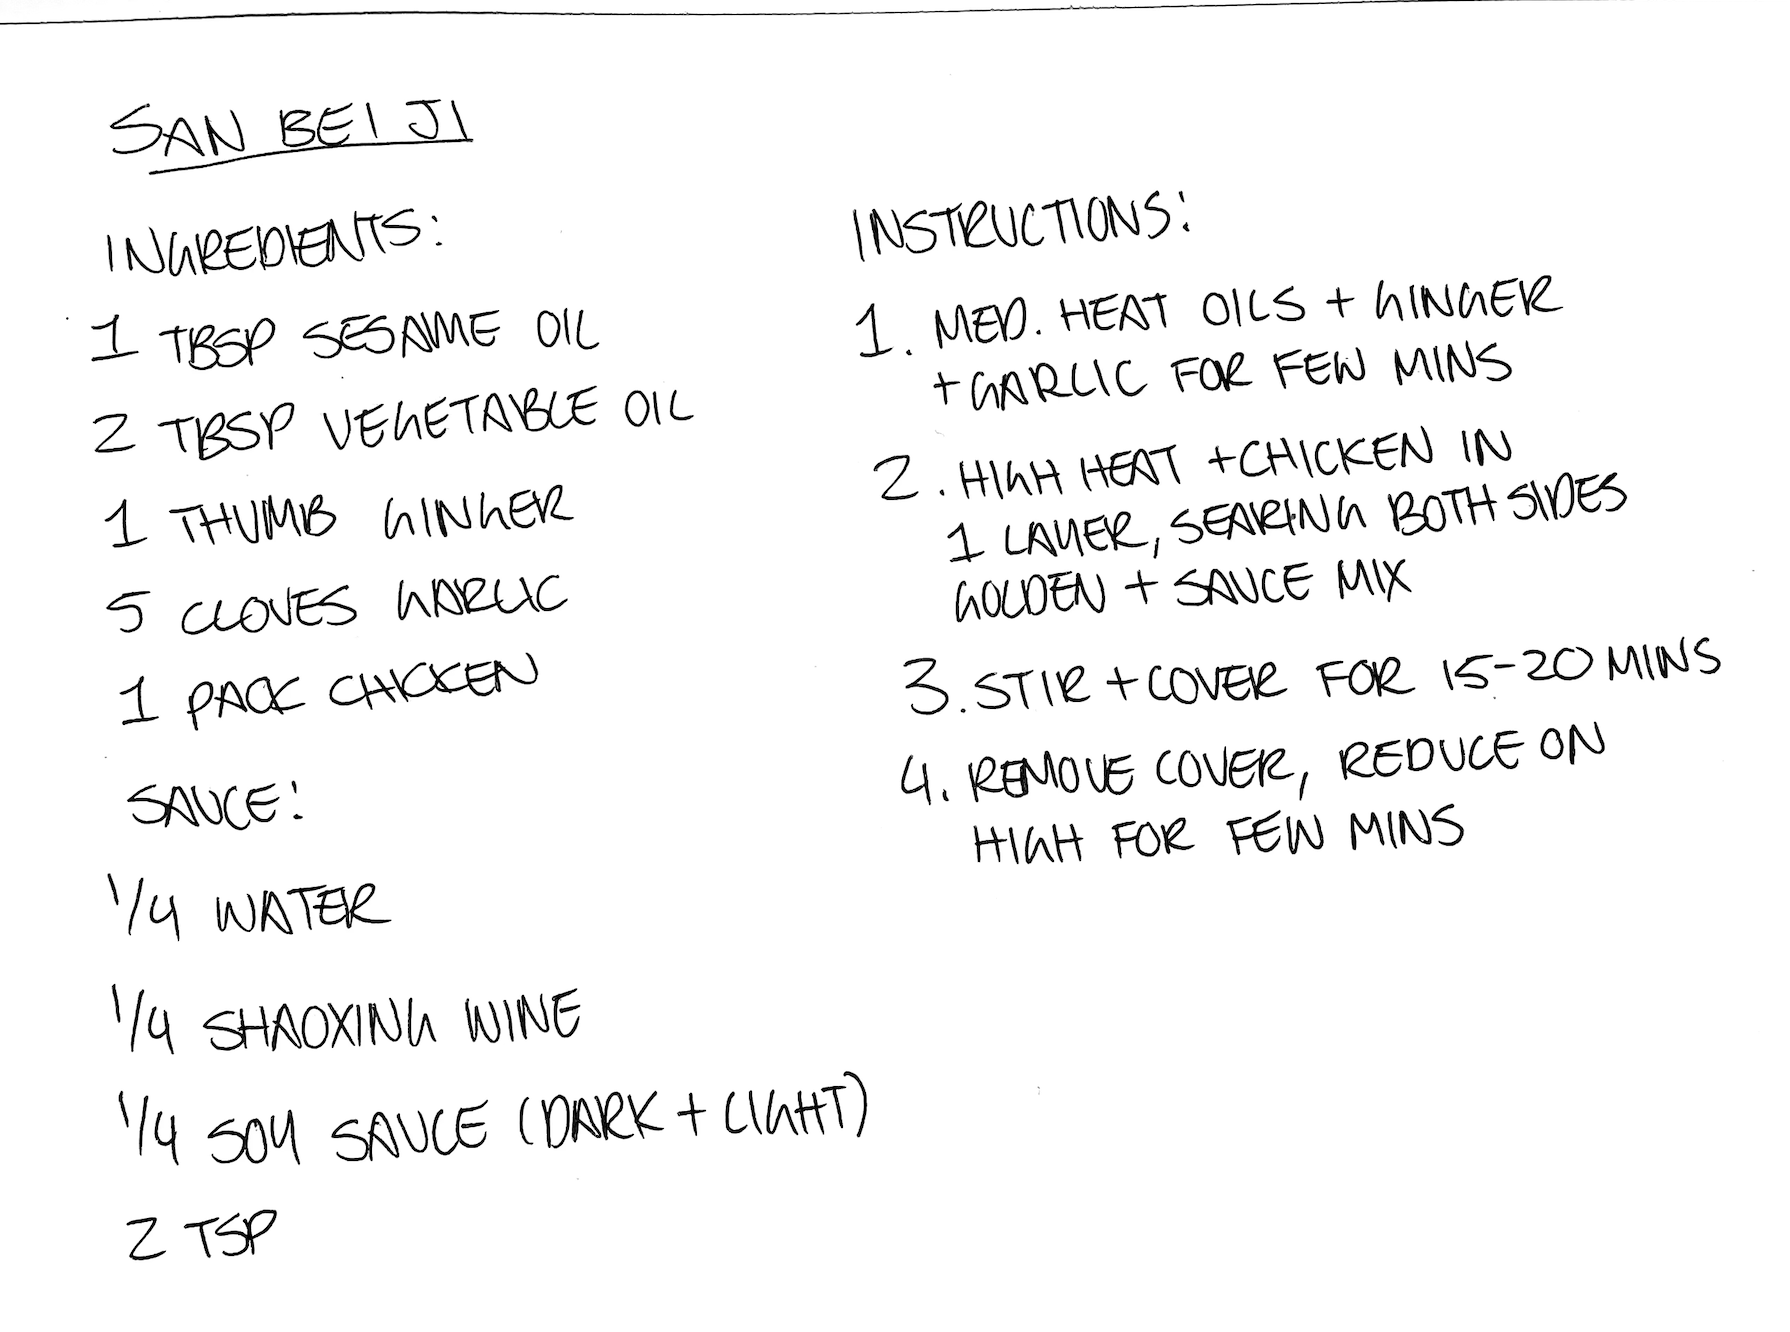 SAN BEI JI
INGREDIENTS:
1 TBSP SESAME OIL
2 TBSP VEGETABLE OIL
1 THUMB GINGER
5 CLOVES GARLIC
1 PACK CHICKEN
SAUCE:
1/4 WATER
1/4 SHAOXING WINE
1/4 SOY SAUCE (DARK + LIGHT)
2 TSP
INSTRUCTIONS:
1. MED. HEAT OILS + GINGER
+ GARLIC FOR FEW MINS
2. HIGH HEAT + CHICKEN IN
1 LAYER, SEARING BOTH SIDES
GOLDEN + SAUCE MIX
3. STIR + COVER FOR 15-20 MINS
4. REMOVE COVER, REDUCE ON
HIGH FOR FEW MINS